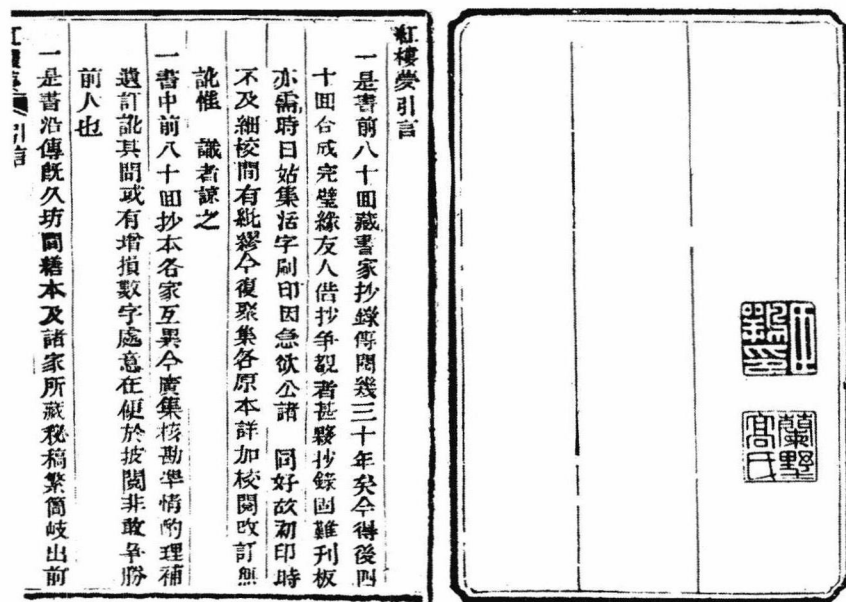 臣鶚印
蘭墅高氏
紅樓夢引言
一是書前八十囬藏書家抄錄傳閱幾三十年矣今得後四
十囬合成完璧緣友人借抄爭覩者甚夥抄錄固難刊板
亦需時日姑集活字刷印因急欲公諸 同好故初印時
不及細校間有紕繆今復聚集各原本詳加校閱改訂無
訛惟 識者諒之
一書中前八十囬抄本各家互異今廣集核勘準情酌理補
遺訂訛其間或有增損數字處意在便於披閱非敢爭勝
前人也
一是書沿傳既久坊間繕本及諸家所藏秘稿繁簡歧出前
紅樓夢 引言